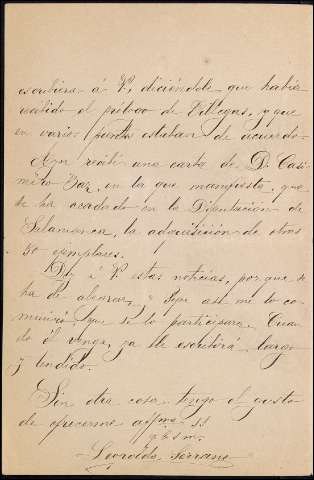 escribiera á V, diciéndole que había
recibido el prólogo de Villegas, y que
en varios puntos estaban de acuerdo.
Ayer recibí una carta de D. Casi
miro Zar, en la que manifiesta, que
se ha acordado en la Diputación de
Salamanca, la adquisición de otros
50 ejemplares.
Doy á V estas noticias, por que se
ha de alegrar, y Pepe así me lo co
munica, que se lo participara. Cuan
do él venga, ya le escribirá largo
y tendido.
Sin otra cosa tengo el gusto
de ofrecerme affmo. s.s
q b s m.
Leopoldo Serrano